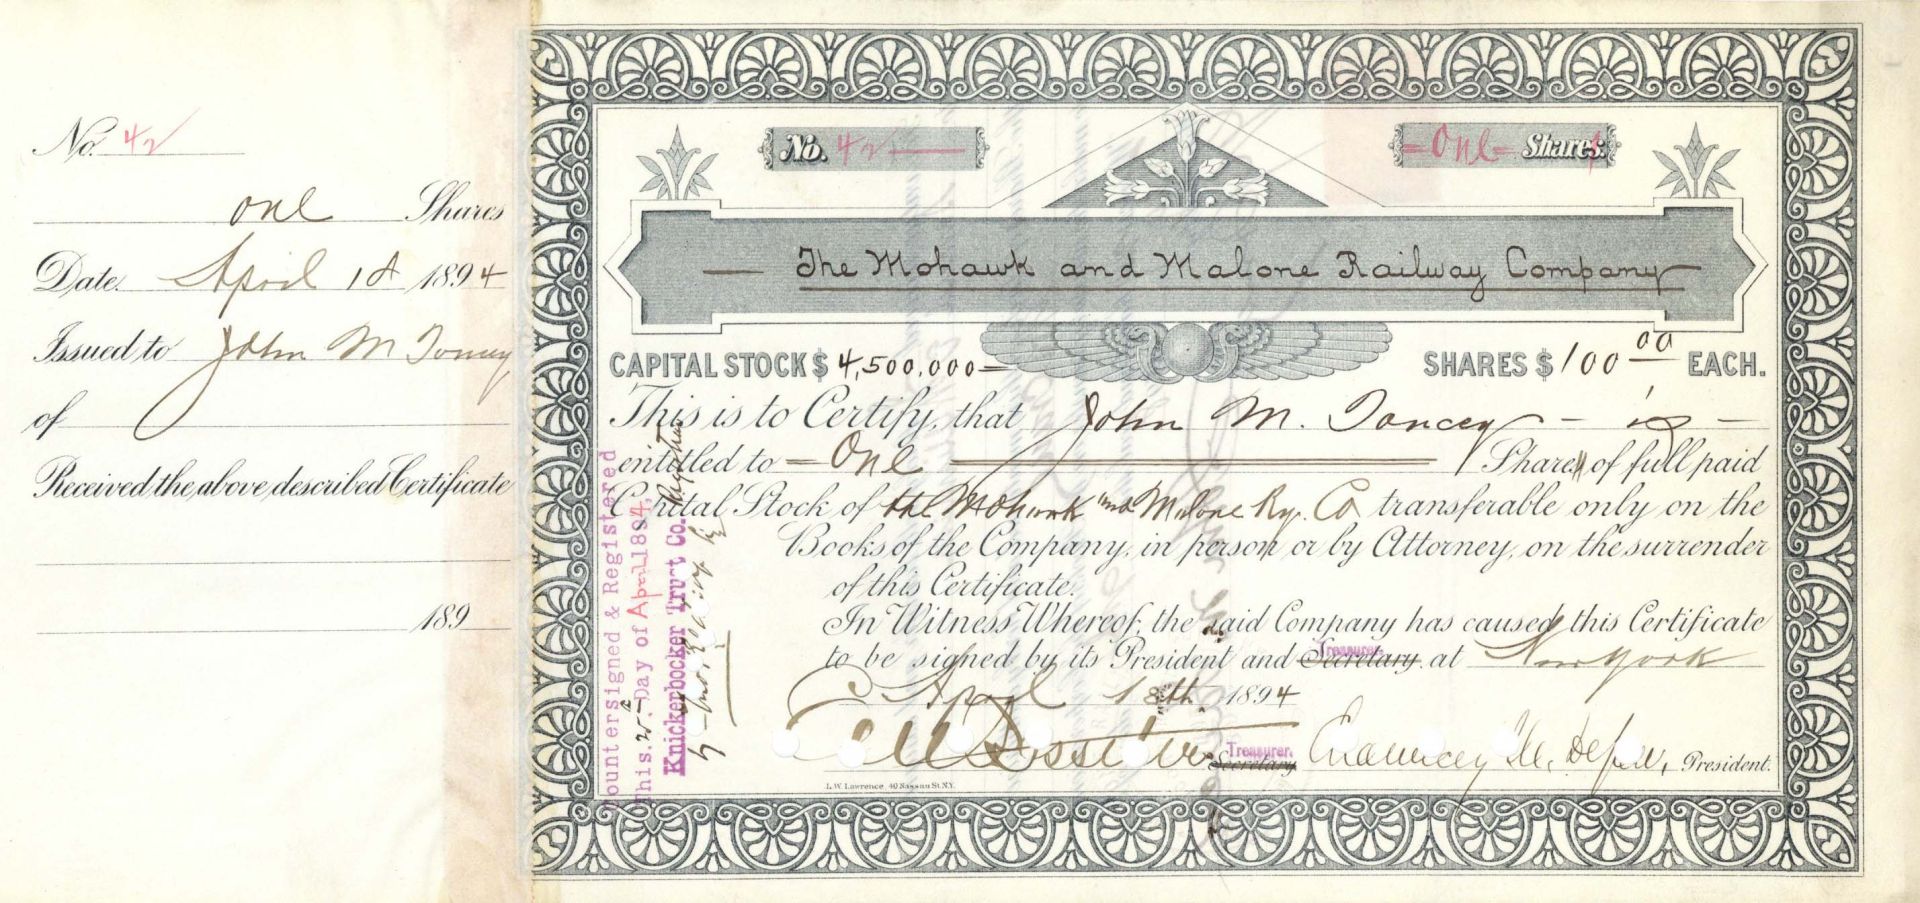 No. 42
one Shares
Date April 18 1894
Issued to John M Toncey
of
Received the above described Certificate
189
No. 42
One Shares
The Mohawk and Malone Railway Company
CAPITAL STOCK $ 4,500,000 SHARES $ 100 00 EACH.
This is to Certify, that John M. Toncey is
entitled to One Shares of full paid
Capital Stock of the Mohawk and Malone Ry. Co transferable only on the
Books of the Company, in person or by Attorney, on the surrender
of this Certificate.
In Witness Whereof, the said Company has caused this Certificate
to be signed by its President and Secretary Treasurer at New York
April 18th 1894
Treasurer.
Secretary
Chauncey M. Depew, President.
L.W. Lawrence, 40 Nassau St. N.Y.
Countersigned & Registered
This 25 Day of April 1894,
Knickerbocker Trust Co. Registrar